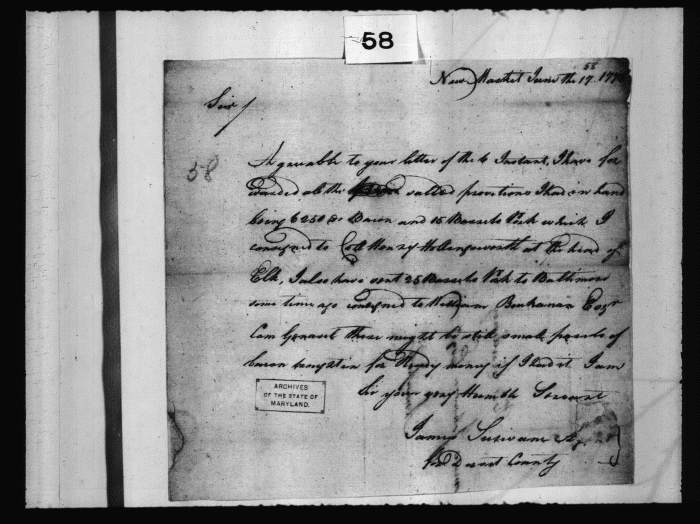 58
58
New Market June the 17 177
Sir /
58
Agreeable to your letter of the 6 Instant, I have for
warded all the salted provitions I had in hand
being 6250 lb Bacon and 15 Barrels Pork which I
consigned to Coll Henry Hollingsworth at the head of
Elk, I also have sent 25 Barrels Pork to Baltimore
some time ago consigned to William Buchanan Esqr
Com General there might be still small parsels of
bacon bought in for Ready money if I had it I am
Sir your very Humble Servant
James Sulivane
for Dorset County
ARCHIVES
OF THE STATE OF
MARYLAND.